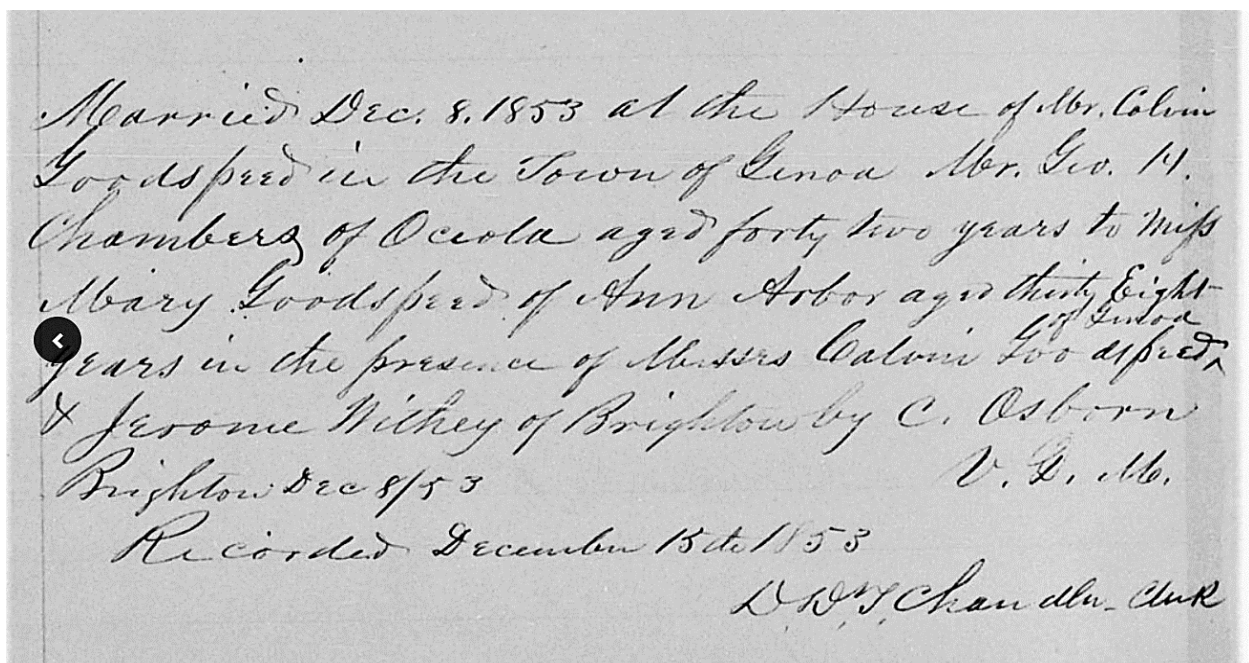 Married Dec. 8. 1853 at the House of Mr. Colvin
Goodspeed in the Town of Genoa Mr. Geo. H.
Chambers of Oceola aged forty two years to Miss
Mary Goodspeed of Ann Arbor aged thirty Eight
of Genoa
years in the presence of Messrs Calvin Goodspeed^
& Jerome Withey of Brighton by C. Osborn
Brighton Dec 8/53 V. D. M.
Recorded December 15th 1853
D. D. T. Chandler - Clerk